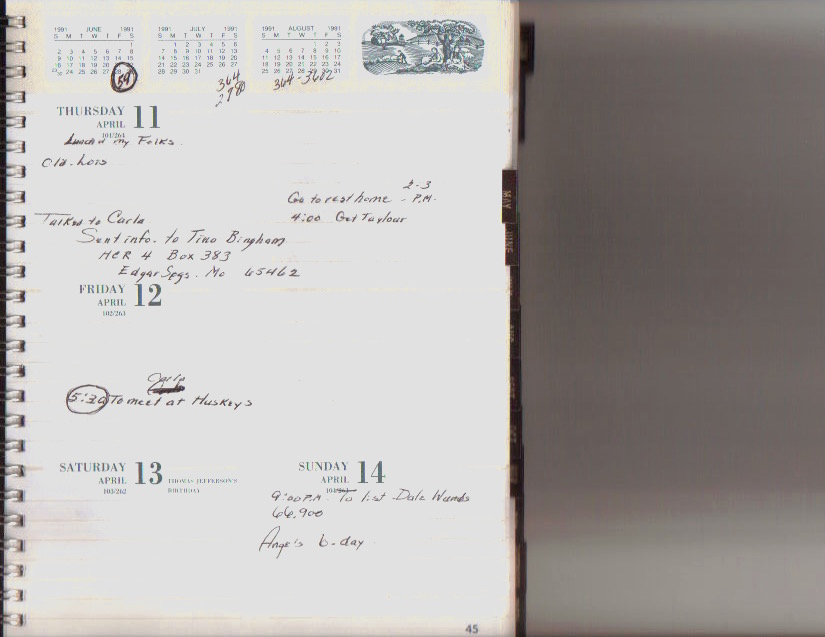 1991 JUNE 1991
S M T W T F S
1
2 3 4 5 6 7 8
9 10 11 12 13 14 15
16 17 18 19 20 21 22
23/30 24 25 26 27 28 29
1991 JULY 1991
S M T W T F S
1 2 3 4 5 6
7 8 9 10 11 12 13
14 15 16 17 18 19 20
21 22 23 24 25 26 27
28 29 30 31
1991 AUGUST 1991
S M T W T F S
1 2 3
4 5 6 7 8 9 10
11 12 13 14 15 16 17
18 19 20 21 22 23 24
25 26 27 28 29 30 31
364
364-3602
THURSDAY 11
APRIL
101/264
my Folks.
Old-Lois
2-3
Go to rest home - P.M.
Talked to Carla
4:00 Get Taylour
Sent info. to Tino Bingham
HCR 4 Box 383
Edgar Spgs. Mo 65462
FRIDAY 12
APRIL
102/263
Carla
5:30 To meet at Huskeys
SATURDAY 13
APRIL
103/262
THOMAS JEFFERSON'S
BIRTHDAY
SUNDAY 14
APRIL
104/261
9:00 P.M. To list Dale Wands
66,900
Ange's b-day
MAY
JUNE
45